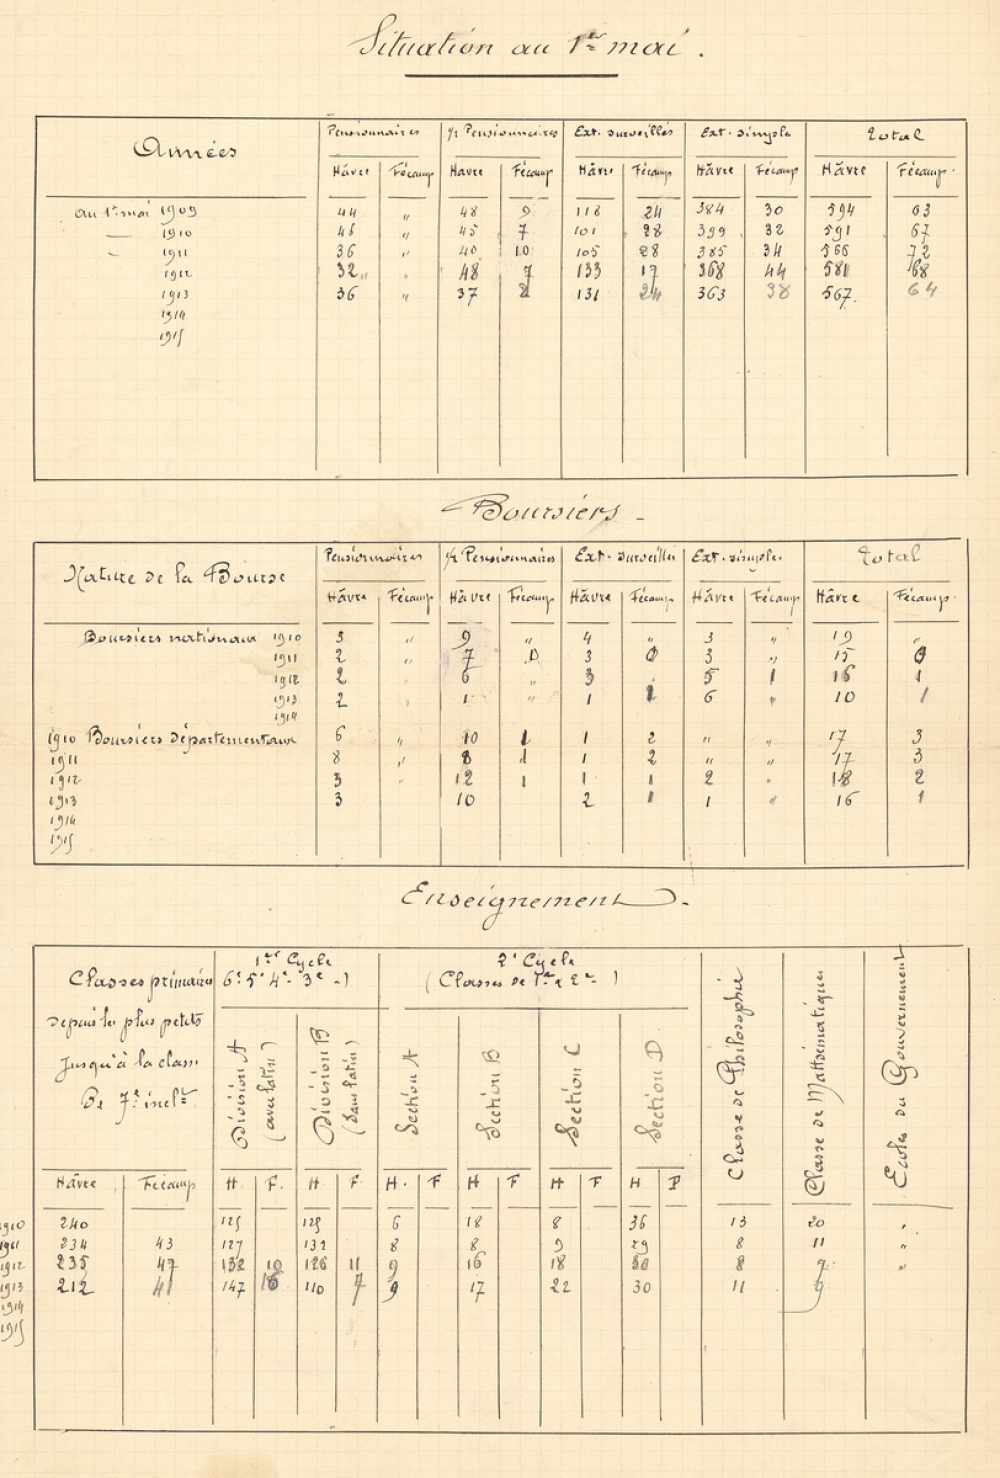 Situation au 1er mai.
Années Pensionnaires ½ Pensionnaires Ext. surveillés Ext. simple Total
Hâvre Fécamp Havre Fécamp Hâvre Fécamp Hâvre Fécamp Hâvre Fécamp.
au 1er mai 1909 44 " 48 9 118 24 384 30 594 63
— 1910 46 " 45 7 101 28 399 32 591 67
— 1911 36 " 40 10 105 28 385 34 566 72
1912 32 " 48 7 133 17 368 44 581 68
1913 36 " 37 2 131 24 363 38 567. 64
1914
1915
Boursiers -
Nature de la Bourse Pensionnaires ½ Pensionnaires Ext. surveillés Ext. simples Total
Hâvre Fécamp Hâvre Fécamp Hâvre Fécamp Hâvre Fécamp Hâvre Fécamp.
Boursiers nationaux 1910 3 " 9 " 4 " 3 " 19 "
1911 2 " 7 0 3 0 3 " 15 0
1912 2 " 6 " 3 5 1 16 1
1913 2 " 1 " 1 1 6 " 10 1
1914
1910 Boursiers départementaux 6 " 10 1 1 2 " " 17 3
1911 8 " 8 1 1 2 " " 17 3
1912 3 " 12 1 1 1 2 " 18 2
1913 3 10 2 1 1 " 16 1
1914
1915
Enseignement -
Classes primaires depuis les plus petits
Jusqu'à la classe
De 7e inclse
1er Cycle
6e 5e 4e - 3e -)
2e Cycle
(Classes de 1re à 2e - )
Division A
(avec latin)
Division B
(sans latin)
Section A
Section B
Section C
Section D
Classe de Philosophie
Classe de Mathématiques
Ecoles du Gouvernement
Hâvre Fécamp H F. H F H. F H F H F H F
1910 240 125 125 6 18 8 36 13 20 "
1911 234 43 127 132 8 8 9 29 8 11 "
1912 235 47 132 10 126 11 9 16 18 30 8 7 "
1913 212 41 147 16 110 7 9 17 22 30 11 9
1914
1915